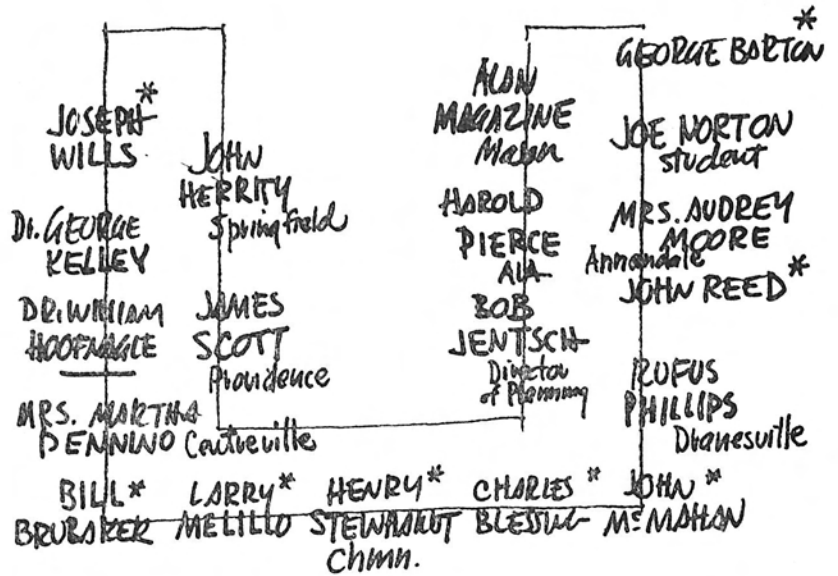 JOSEPH*
WILLS
Dr. GEORGE
KELLEY
DR. WILLIAM
HOOFNAGLE
MRS. MARTHA
PENNINO Centreville
JOHN
HERRITY
Springfield
JAMES
SCOTT
Providence
ALAN
MAGAZINE
Mason
HAROLD
PIERCE
AIA
BOB
JENTSCH
Director
of Planning
GEORGE BARTON*
JOE NORTON
student
MRS. AUDREY
MOORE
Annandale
JOHN REED*
RUFUS
PHILLIPS
Dranesville
BILL* LARRY* HENRY* CHARLES* JOHN*
BRUBAKER MELILLO STEINHARDT BLESSING McMAHAN
Chmn.